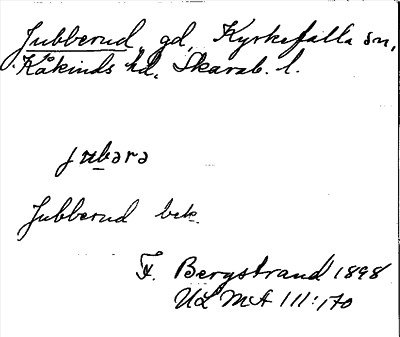 Jubberud, gd, Kyrkefalla sn,
Kåkinds hd, Skarab. l.
jubərə
Jubberud bek.
F. Bergstrand 1898
ULMA 111:170